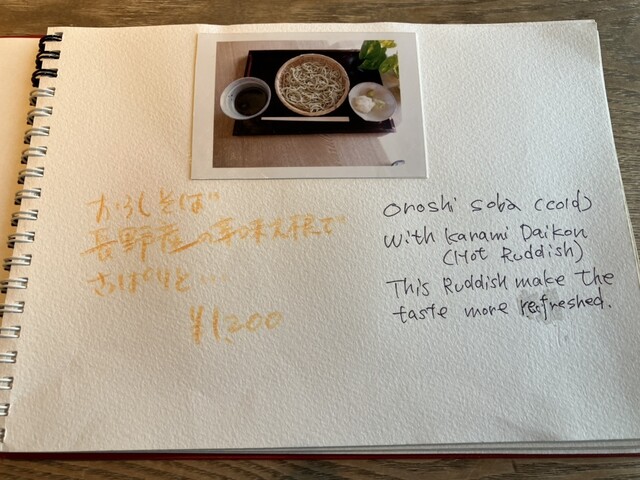 おろしそば
長野産の辛味大根で
さっぱりと…
¥1,200
Oroshi soba (cold)
With Karami Daikon
(Hot Ruddish)
This Ruddish make the
taste more refreshed.